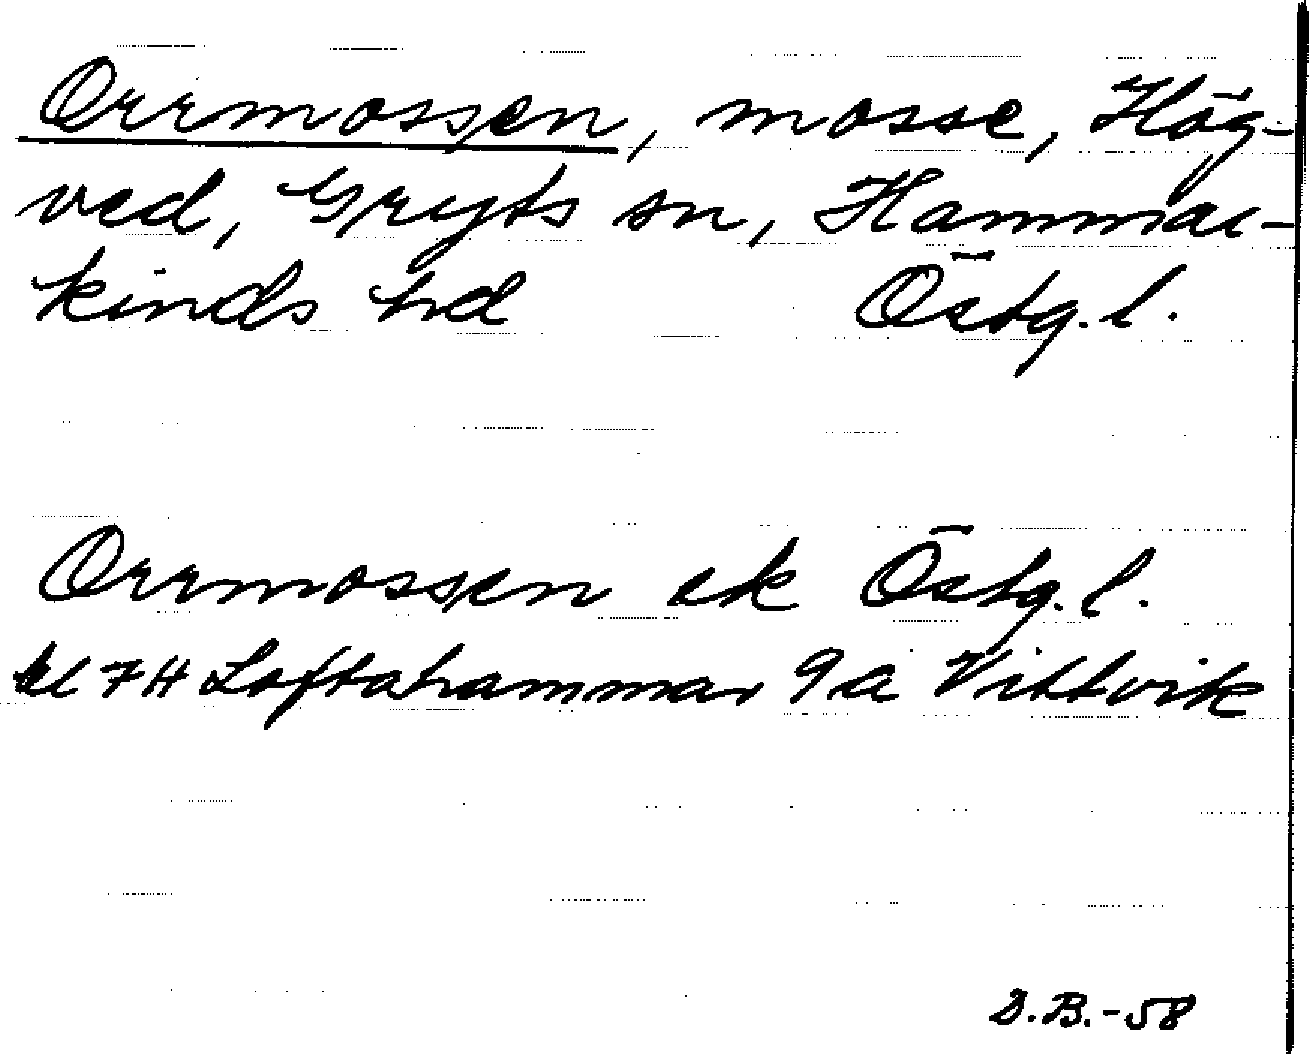 Orrmossen, mosse, Hög-
ved, Gryts sn, Hammar-
kinds hd Östg. l.
Orrmossen ek Östg. l.
bl 7H Loftahammar 9a Vittvik
D.B.-58